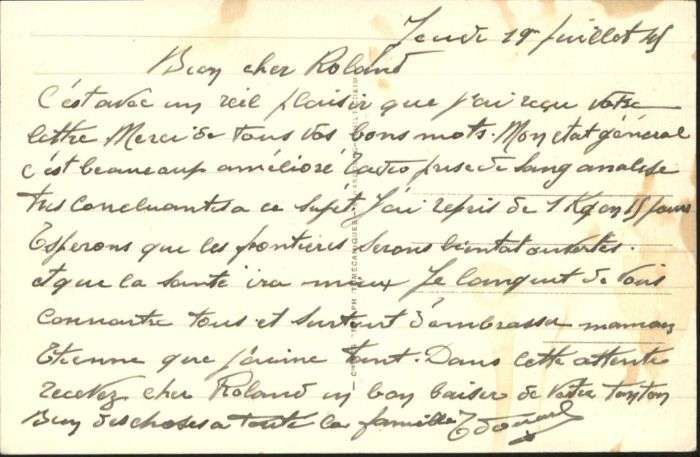 Jeudi 19 Juillet 45
Bien cher Roland
C'est avec un réel plaisir que j'ai reçu votre
lettre Merci de tous vos bons mots. Mon etat général
c'est beaucoup amélioré prise de sang analyse
tres concluantes a ce sujet J'ai repris de 1 Kg en 15 jours
Esperons que les frontières serons bientat ouvertes.
et que la santé ira mieux Je languit de vous
connaitre tous et surtout d'embrasser maman
Etienne que j'aime tant. Dans cette attente
recevez cher Roland un bon baiser de votre tonton
Bien des choses a toute la famille Edouard